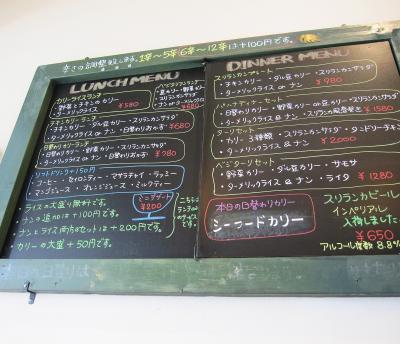 辛さの調整致します。1辛～5辛 6辛～12辛は+100円です。
LUNCH MENU
カリーライスランチ
・野菜とチキンのカリー
・ライス ¥580
チキンカリーランチ
・チキンカリー・ダル豆カリー・スリランカンサラダ
・ターメリックライス or ナン・日替わりおかず ¥680
日替わりカリーランチ
・日替わりカリー・野菜カリー・スリランカンサラダ
・ターメリックライス ナン・日替わりおかず ¥780
ベジタリアンランチ
・野菜カリー
・スリランカンサラダ
ナン or ライス ¥680
ソフトドリンク+150円
コーヒー・セイロンティー・マサラチャイ・ラッシー
マンゴジュース・オレンジジュース・ミルクティー
ミニデザート
¥200
・ライスの大盛り無料です。
・ナンの追加は+100円です。
・ナンとライス両方のセットは+200円です。
・カリーの大盛+50円です。
DINNER MENU
スリランカンプレート
・チキンカリー・ダル豆カリー・スリランカンサラダ
・ターメリックライス ¥980
バハナディナーセット
・日替わりカリー・野菜カリー or 豆カリー・スリランカンサラダ
・ターメリックライス & ナン ¥1580
ターリセット
・カリー3種類・スリランカンサラダ・タンドリーチキン
・ターメリックライス & ナン ¥2,000
ベジタリセット
・野菜カリー・ダル豆カリー・サモサ
・ターメリックライス & ナン・ライタ ¥1280
本日の日替わりカリー
シーフードカリー
スリランカビール
インペリアル
入荷しました
¥650
アルコール度数 8.8%